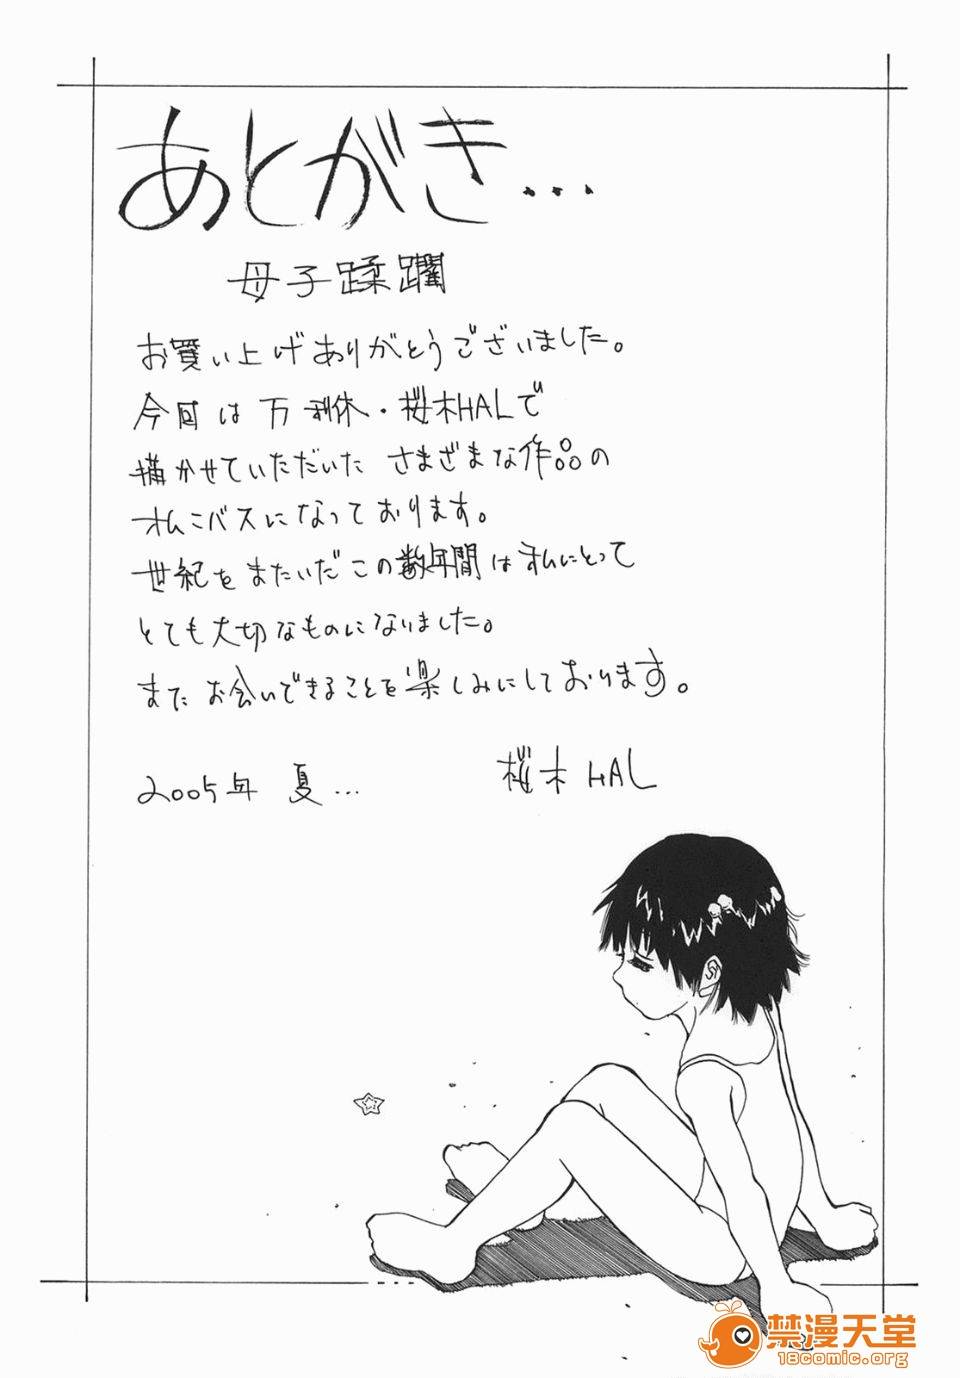 あとがき...
母子蹂躙
お買い上げありがとうございました。
今回は 万利休・桜木HALで
描かせていただいた さまざまな作品の
オムニバスになっております。
世紀をまたいだこの数年間は私にとって
とても大切なものになりました。
また お会いできることを楽しみにしております。
2005年 夏...
桜木HAL
禁漫天堂
18comic.org